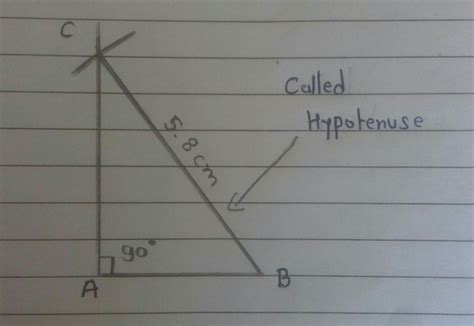 C
Called
Hypotenuse
5.8 cm
90°
A
B